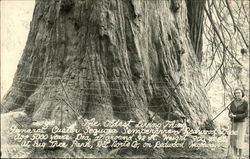 The Oldest Living Thing
General Custer Sequoia Sempervirens Redwood Tree
Age 5000 years Dia. Ground 92 Ft. Weight
At Big Tree Park, Del Norte Co, on Redwood Highway